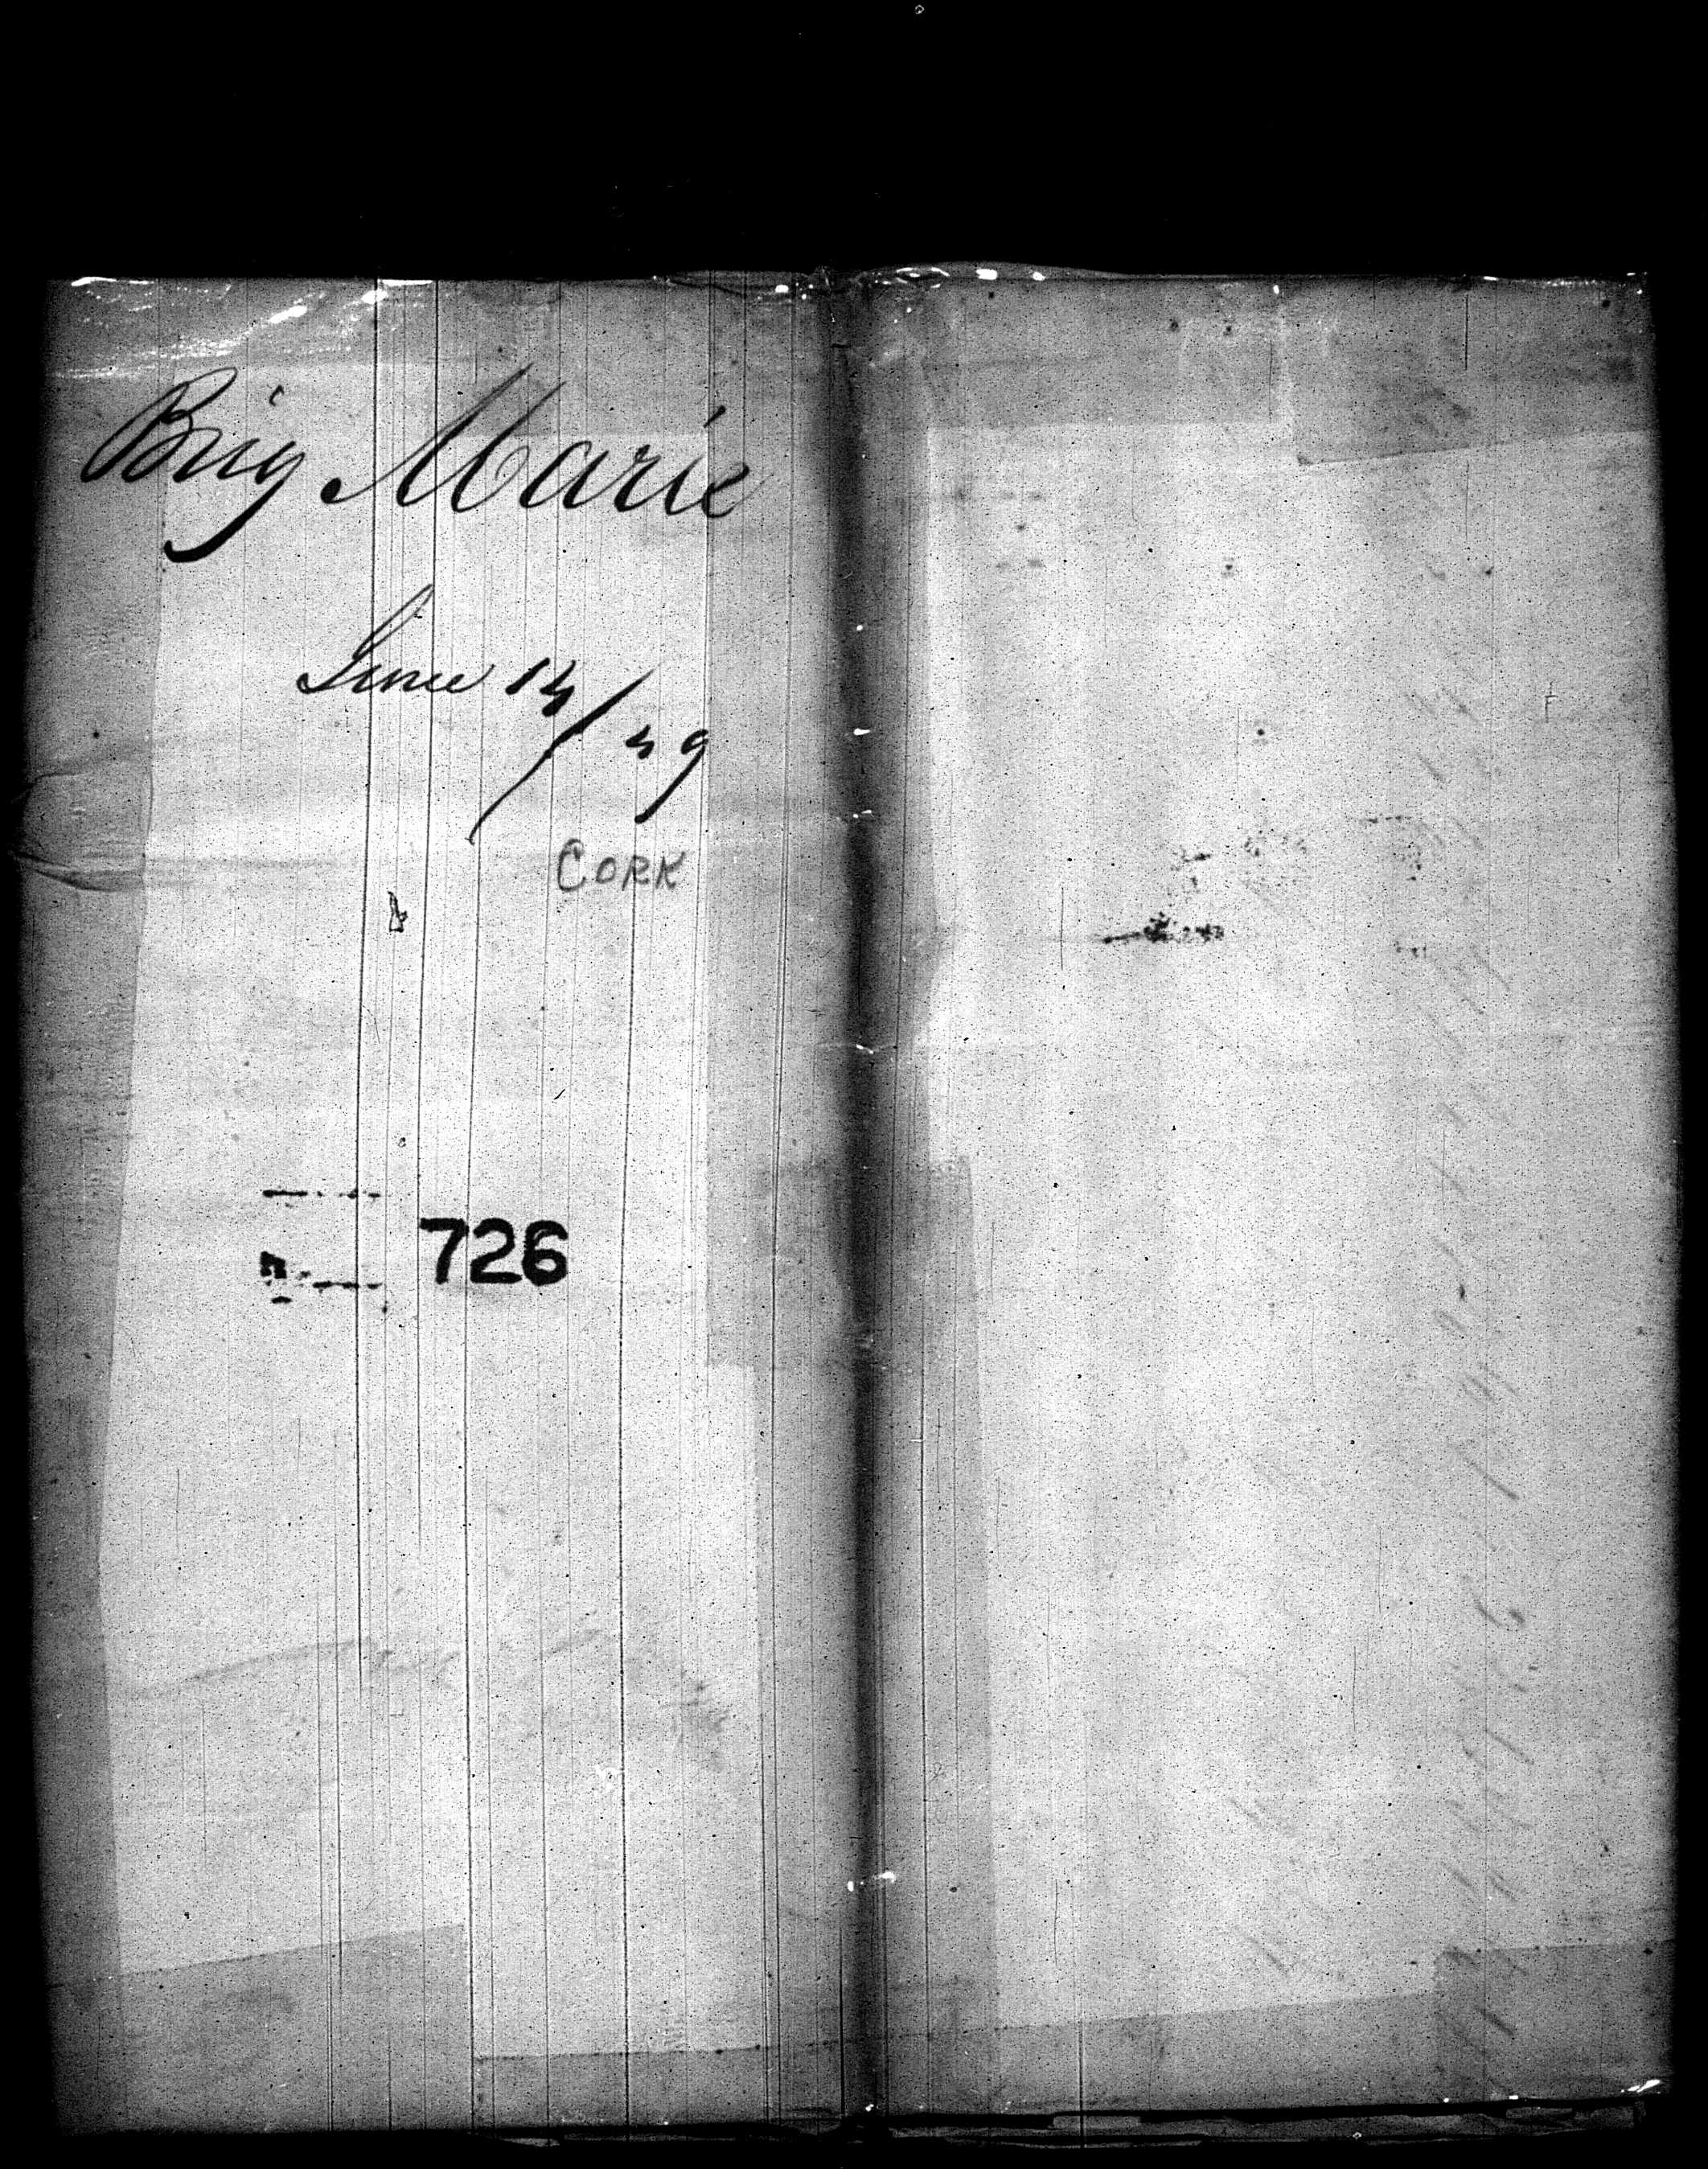 Brig Marie
June 14/49
CORK
726